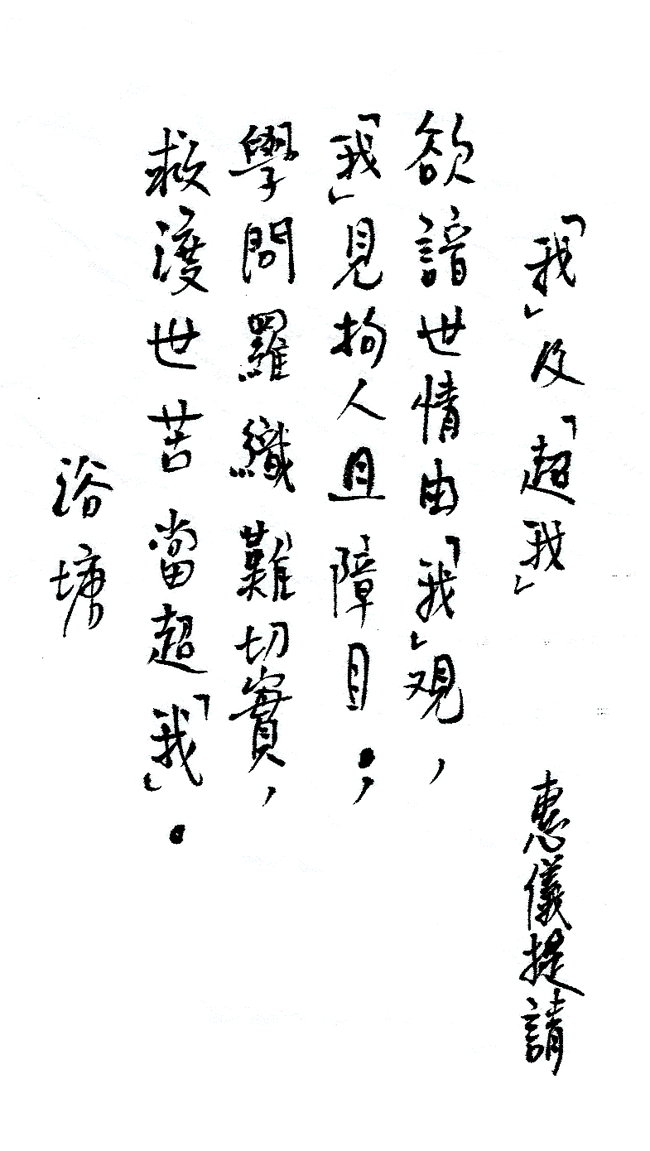 「我」及「超我」 惠儀提請
欲諳世情由「我」觀，
「我」見拘人且障目；
學問羅織難切實，
救渡世苦當超「我」。
浴塘